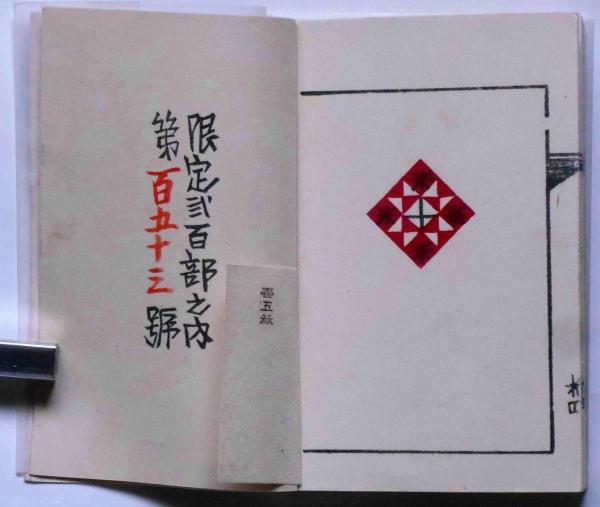 限定弐百部之内
第百五十三號
壹五叁